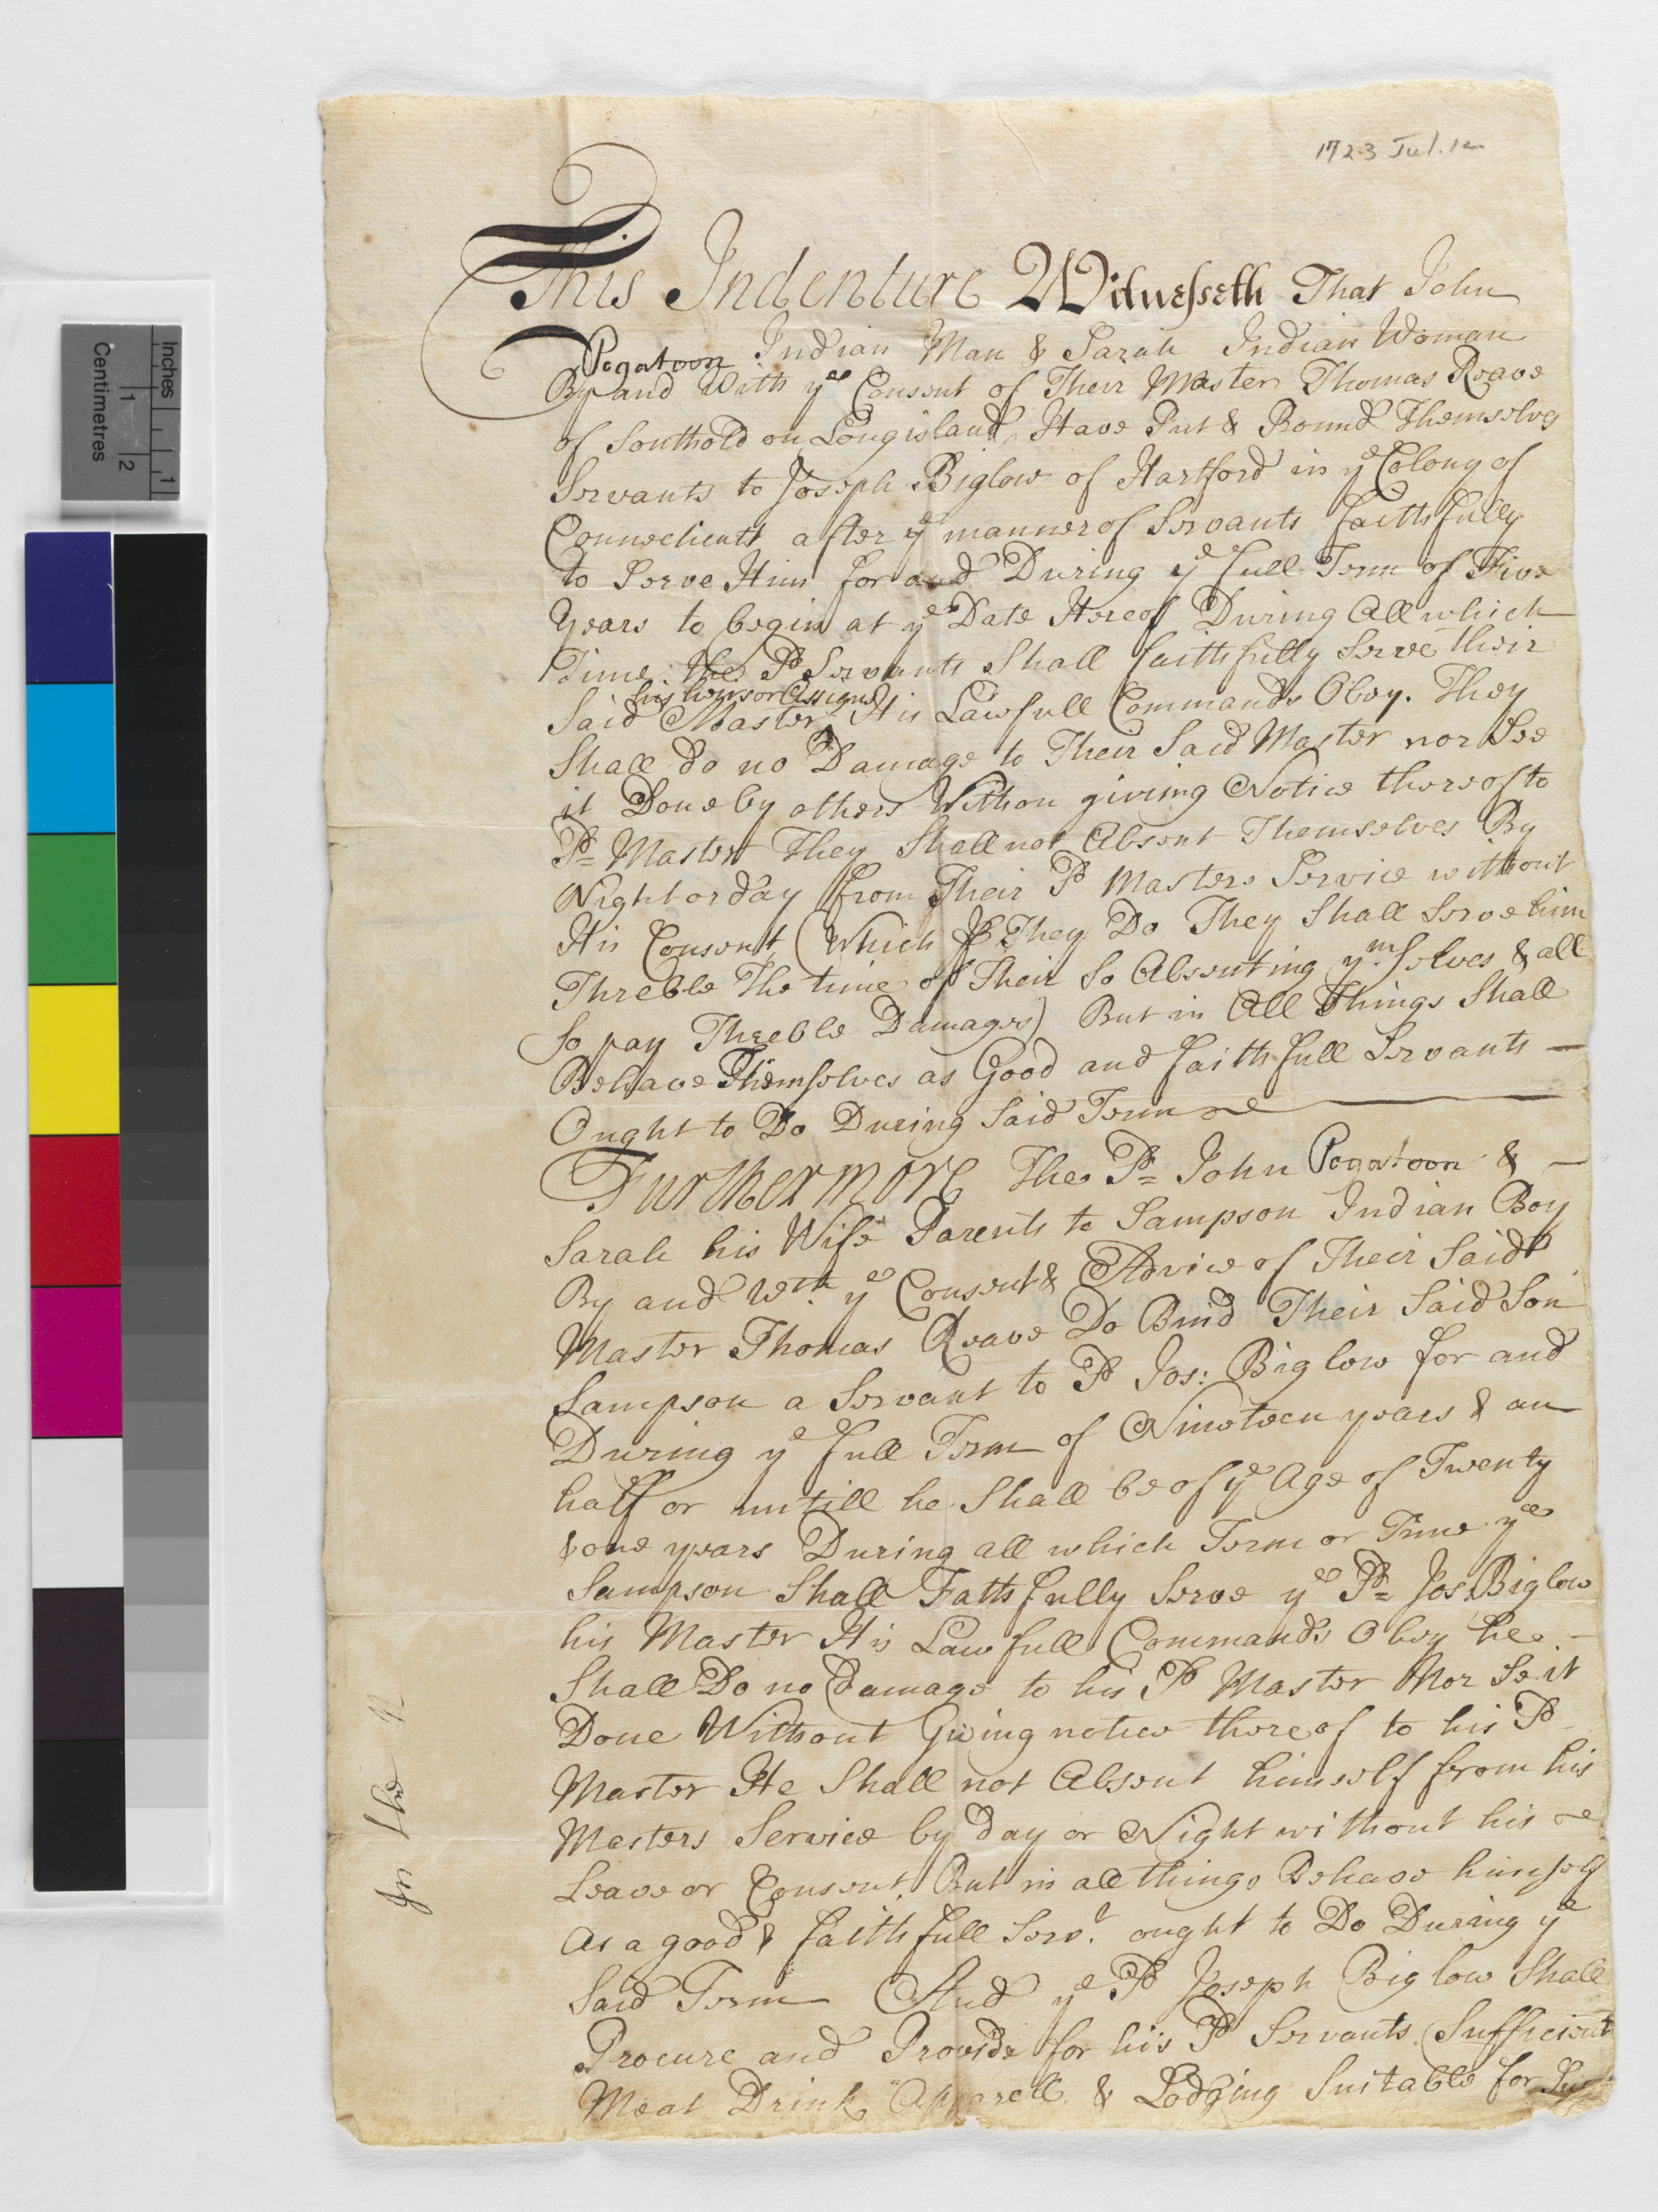 1723 Jul. 12
This Indenture Witnesseth That John
Pogatoon Indian Man & Sarah Indian Woman
By and With ye Consent of Their Master Thomas Reave
of Southold on Longisland, Have Put & Bound Themselves
Servants to Joseph Biglow of Hartford in ye Colony of
Connecticutt after ye manner of Servants faithfully
to Serve Him for and During ye full Term of Five
Years to begin at ye Date Hereof During All which
Time the Sd Servants Shall faithfully Serve their
his heirs or Assigns
Said Master ^ His Lawfull Commands Obey. They
Shall do no Damage to Their Said Master nor See
it Done by others Withou giving Notice thereof to
Sd Master They Shall not Absent Themselves By
Night or day from Their Sd Masters Service without
His Consent (Which If They Do They Shall Serve him
Threble The time of Their So Absenting ymselves & all
So pay Threble Damages) But in All Things Shall
Behave Themselves as Good and faithfull Servants —
Ought to Do During Said Term
Furthermore The Sd John Pogatoon & —
Sarah his Wife Parents to Sampson Indian Boy
By and Wth ye Consent & Advice of Their Said
Master Thomas Reave Do Bind Their Said Son
Sampson a Servant to Sd Jos: Biglow for and
During ye full Term of Nineteen years & an
half or untill he Shall be of ye Age of Twenty
& one years During all which Term or Time ye
Sampson Shall Fathfully Serve ye Sd Jos: Biglow
his Master His Lawfull Commands Obey he —
Shall Do no Damage to his Sd Master Nor Se it
Done Without Giving notice thereof to his Sd
Master He Shall not Absent himself from his
Masters Service by day or Night without his
Leave or Consent, But in all things Behave himself
As a good & faithfull Servt ought to Do During ye
Said Term And ye Sd Joseph Biglow Shall
Procure and Provide for his Sd Servants Sufficient
Meat Drink Apparell & Lodging Suitable for